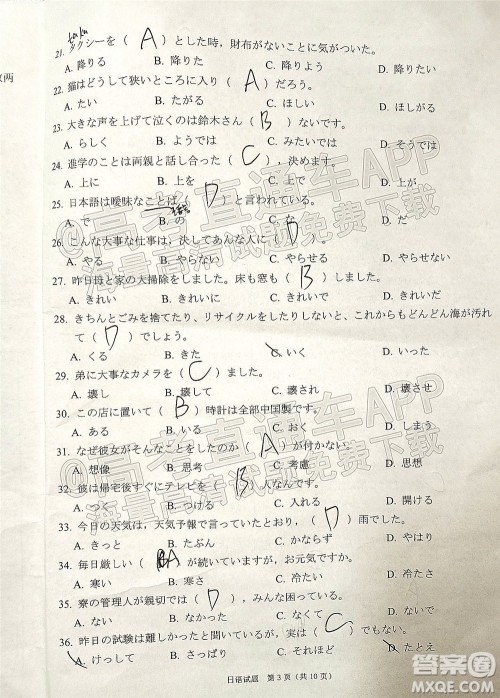 21. タクシーを（ A ）とした時，財布がないことに気がついた。
A. 降りる B. 降りた C. 降りよう D. 降りたい
22. 猫はどうして狭いところに入り（ A ）だろう。
A. たい B. たがる C. ほしい D. ほしがる
23. 大きな声を上げて泣くのは鈴木さん（ B ）ないです。
A. らしく B. ようでは C. みたいでは D. そうでは
24. 進学のことは両親と話し合った（ C ），決めます。
A. 上に B. 上を C. 上で D. 上は
25. 日本語は曖昧なことば（ D ）と言われている。
A. で B. の C. な D. だ
26. こんな大事な仕事は，決してあんな人に（ D ）。
A. やる B. やらない C. やらせる D. やらせない
27. 昨日母と家の大掃除をしました。床も窓も（ B ）しました。
A. きれい B. きれいに C. きれいな D. きれいで
28. きちんとごみを捨てたり，リサイクルをしたりしないと，これからもどんどん海が汚れ
て（ D ）でしょう。
A. くる B. きた C. いく D. いった
29. 弟に大事なカメラを（ C ）ました。
A. 壊し B. 壊して C. 壊され D. 壊させ
30. この店に置いて（ B ）時計は全部中国製です。
A. ある B. いる C. おく D. しまう
31. なぜ彼女がそんなことをしたのか（ A ）が付かない。
A. 想像 B. 思考 C. 考慮 D. 思想
32. 彼は帰宅後すぐにテレビを（ B ）人なんです。
A. つく B. つける C. 入れる D. 開ける
33. 今日の天気は，天気予報で言っていたとおり，（ D ）雨でした。
A. きっと B. たぶん C. かならず D. やはり
34. 毎日厳しい（ A ）が続いていますが，お元気ですか。
A. 寒い B. 寒さ C. 冷たい D. 冷たさ
35. 寮の管理人が親切では（ D ），みんな困っている。
A. なくて B. ないで C. なく D. ない
36. 昨日の試験は難しかったと聞いていたが，実は（ C ）でもなかった。
A. けっして B. まったく C. それほど D. たとえ
日语试题 第3页（共10页）
@高考直通车APP
海量高清试题免费下载
答案圈
MXQE.COM